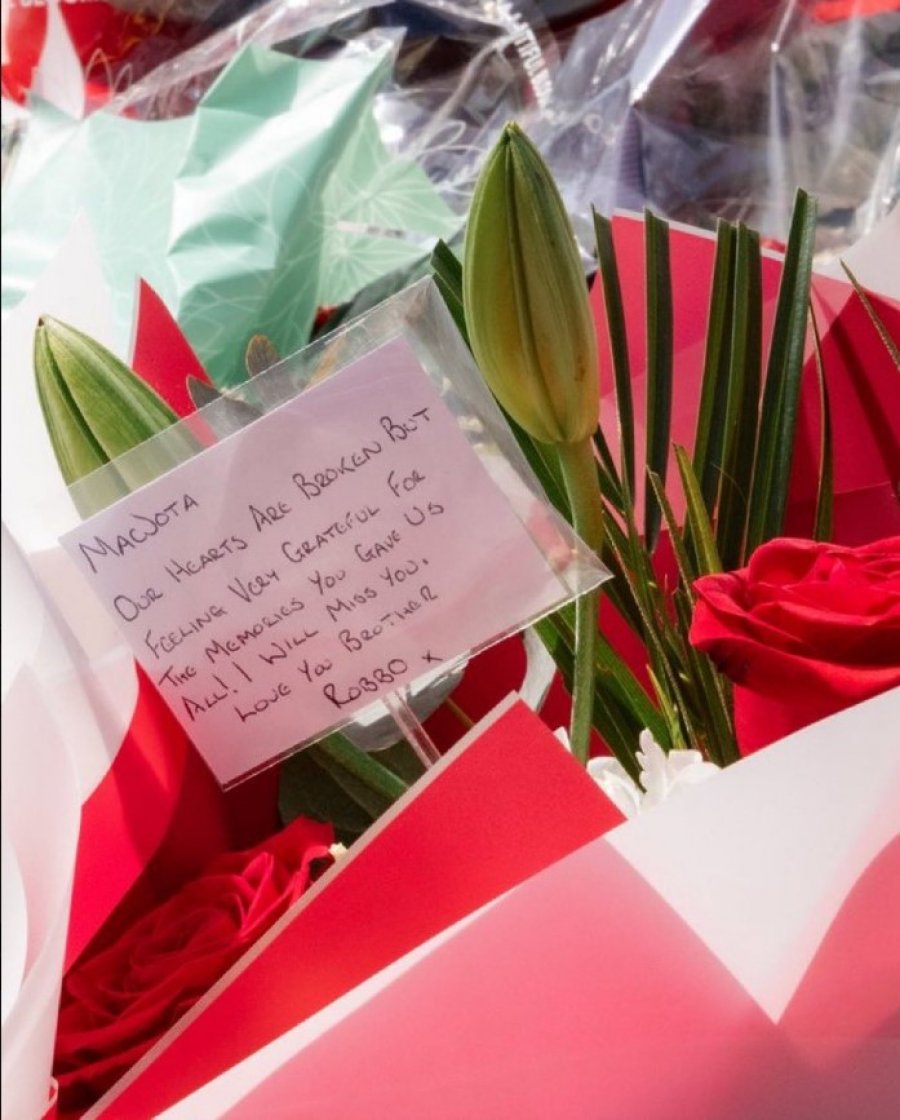 MACJOTA
OUR HEARTS ARE BROKEN BUT
FEELING VERY GRATEFUL FOR
THE MEMORIES YOU GAVE US
ALL! I WILL MISS YOU.
LOVE YOU BROTHER
ROBBO X